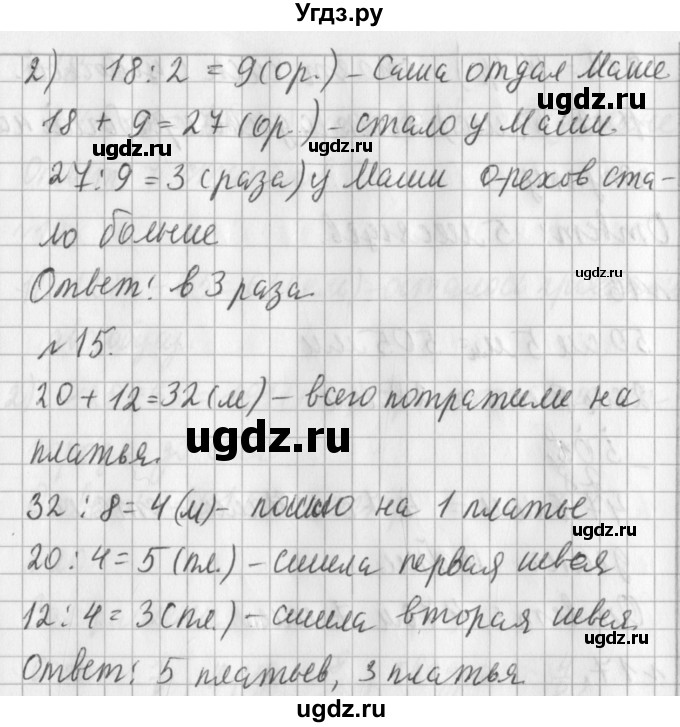 Угдз.ру
2) 18 : 2 = 9 (ор.) – Саша отдал Маше
18 + 9 = 27 (ор.) – стало у Маши.
27 : 9 = 3 (раза) у Маши орехов ста-
ло больше
Ответ: в 3 раза.
№15.
20 + 12 = 32 (м) – всего потратили на
платья.
32 : 8 = 4 (м) – пошло на 1 платье
20 : 4 = 5 (пл.) – сшила первая швея
12 : 4 = 3 (пл.) – сшила вторая швея
Ответ: 5 платьев, 3 платья.
ugdz.ru
ugdz.ru
ugdz.ru
ugdz.ru
ugdz.ru
ugdz.ru
ugdz.ru
ugdz.ru
ugdz.ru